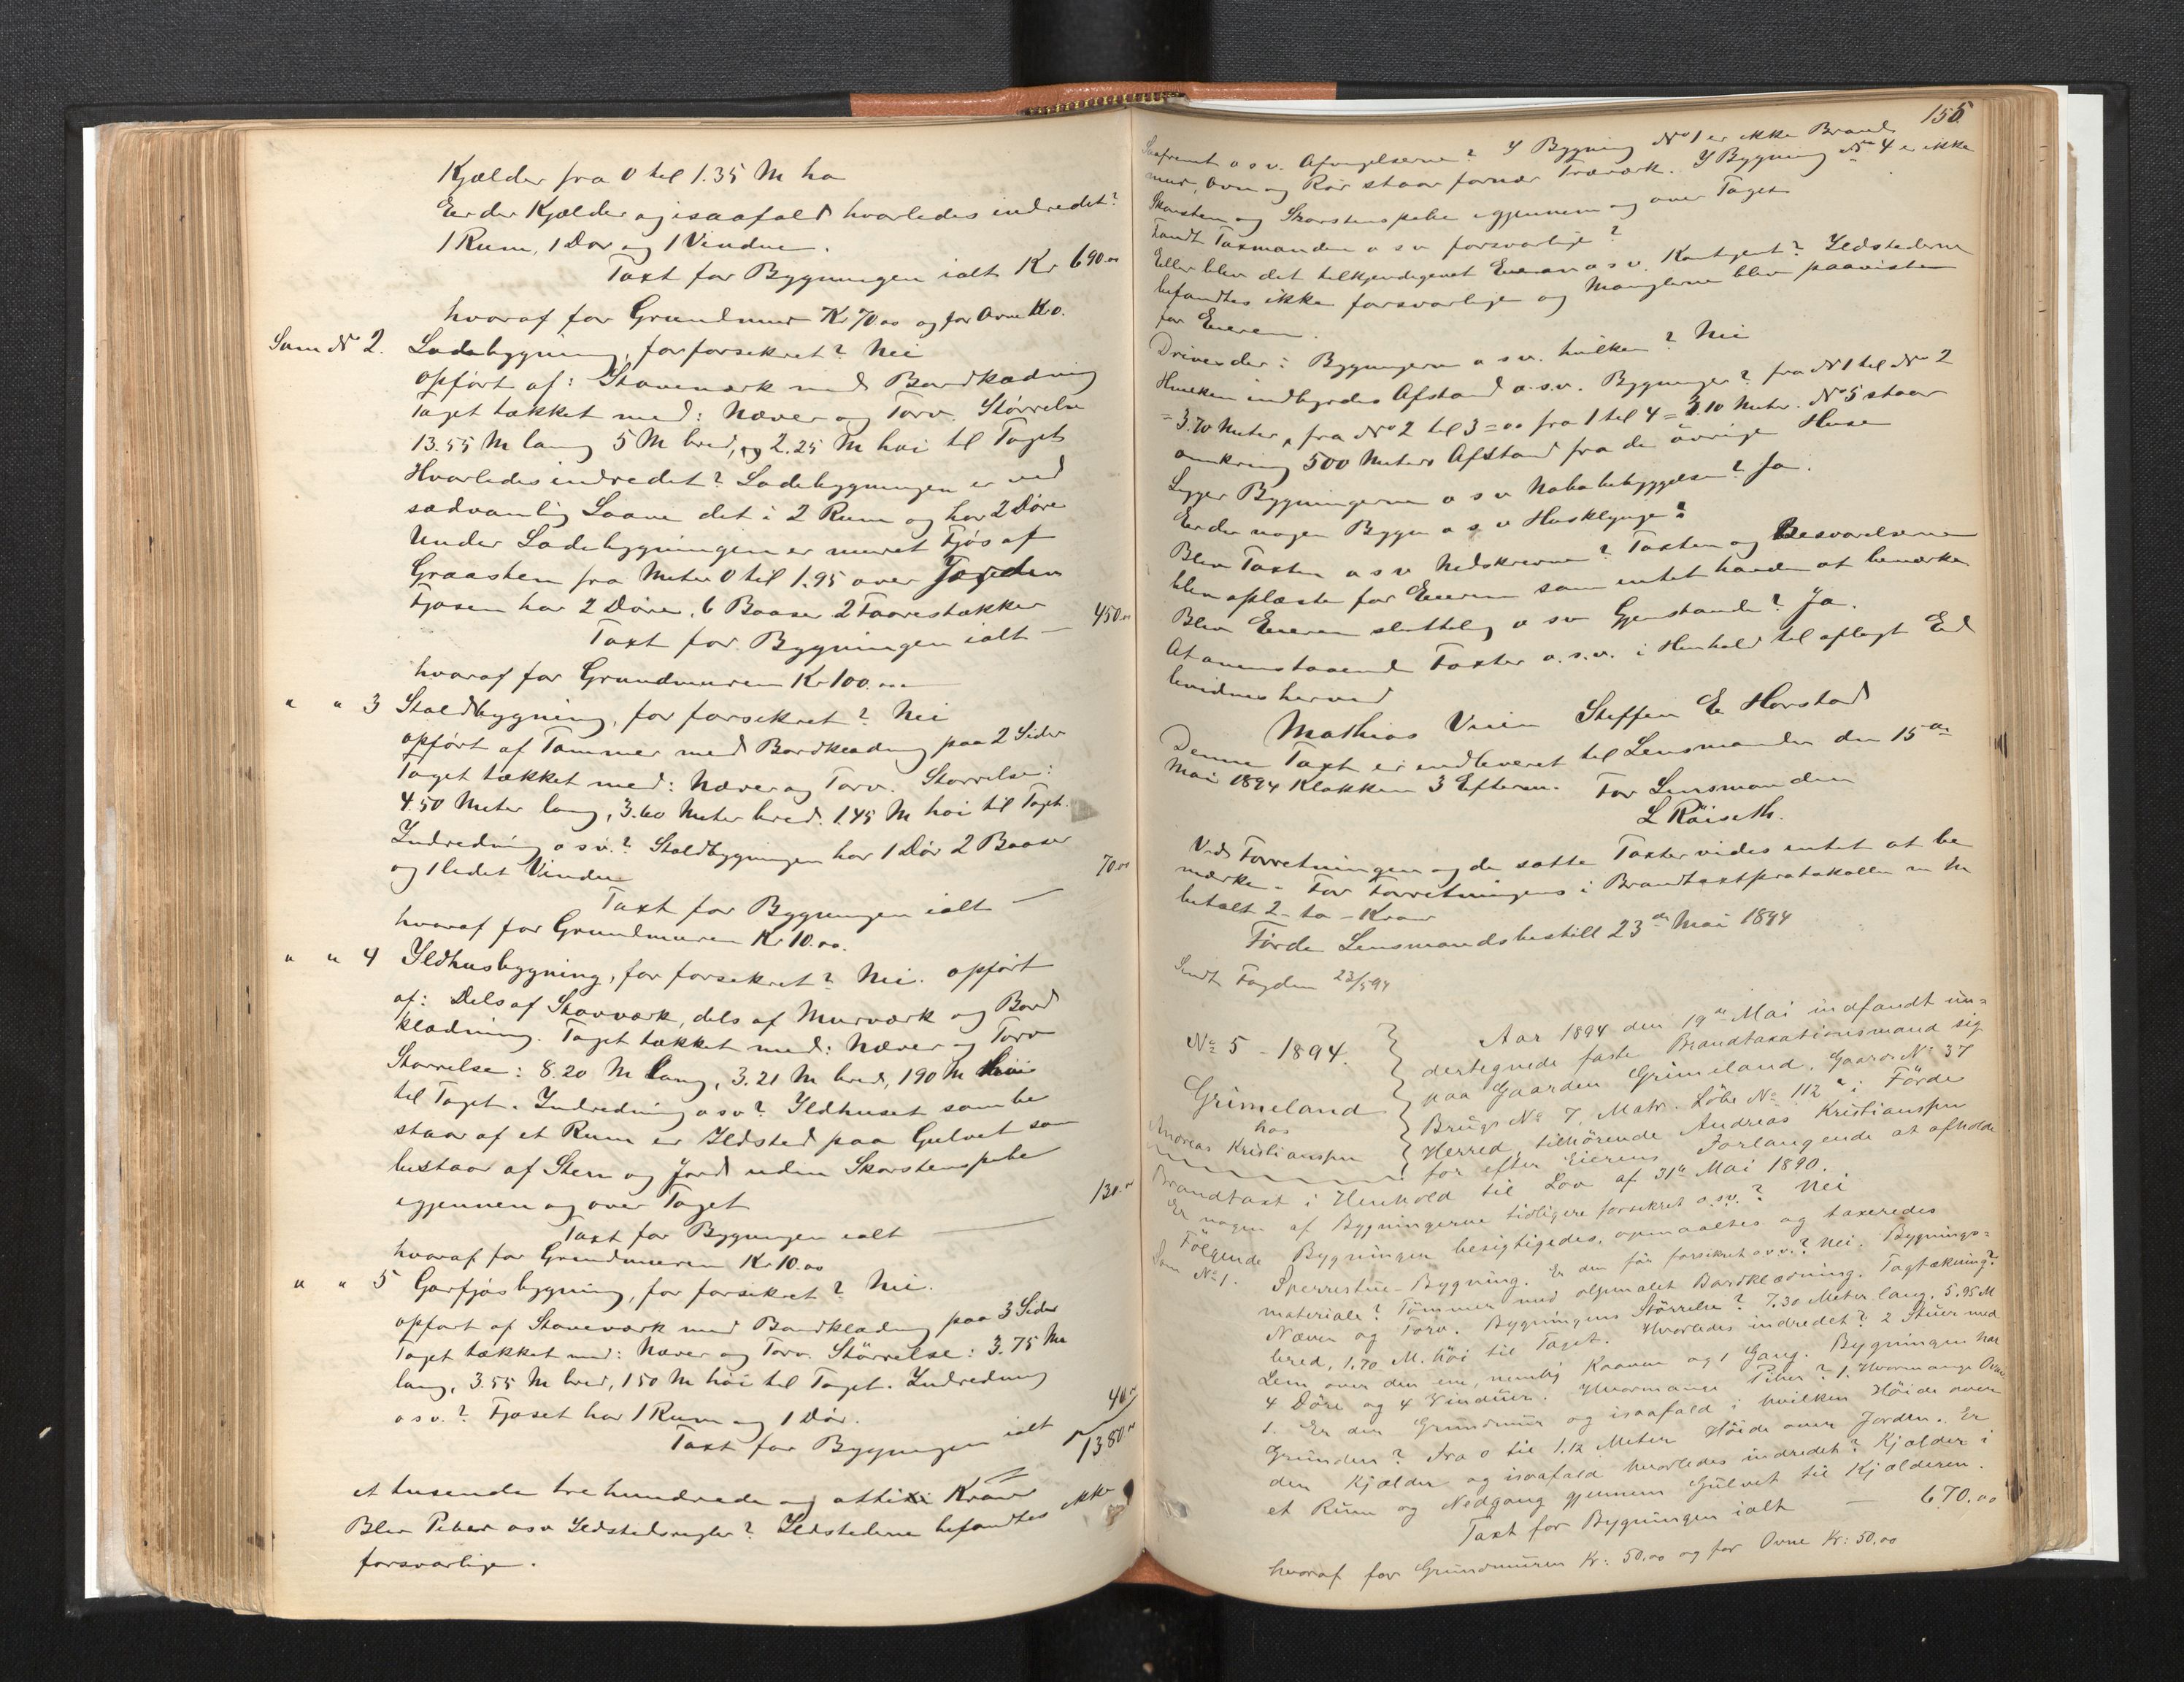 Kjælder fra 0 til 1.35 M ho
Er der Kjælder og isaafald hvorledes indredet?
1 Rum, 1 Dør og 1 Vindue.
Taxt for Bygningen ialt Kr 690.00
hvoraf for Grundmur Kr 70.00 og for Ovne Kr 0.
Som No 2. Ladebygning, før forsikret? Nei
opført af: Stavværk med Bordklædning
Taget tækket med: Næver og Torv. Størrelse
13.55 M lang 5 M bred, og 2.25 M høi til Taget
Hvorledes indredet? Ladebygningen er ved
sædvanlig Laave delt i 2 Rum og har 2 Døre
Under Ladebygningen er muret Fjøs af
Graasten fra Meter 0 til 1.95 over Jorden
Fjøsen har 2 Døre, 6 Baaser 2 Faarestækker
Taxt for Bygningen ialt — 450.00
hvoraf for Grundmuren Kr 100.00
" " 3 Staldbygning, før forsikret? Nei
opført af Tømmer med Bordklædning paa 2 Sider
Taget tækket med: Næver og Torv. Størrelse:
4.50 Meter lang, 3.60 Meter bred. 1.45 M høi til Taget.
Indredning o s v.? Staldbygningen har 1 Dør 2 Baaser
og 1 ledet Vindue
Taxt for Bygningen ialt — 70.00
hvoraf for Grundmuren Kr 10.00.
" " 4 Ildhusbygning, før forsikret? Nei. opført
af: Dels af Stavværk, dels af Murværk og Bord
klædning. Taget tækket med: Næver og Torv
Størrelse: 8.20 M Lang, 3.21 M bred, 190 M høi
til Taget. Indredning o s v? Ildhuset som be
staar af et Rum er Ildsted paa Gulvet som
bestaar af Sten og Jord uden Skorstenspibe
igjennem og over Taget
Taxt for Bygningen ialt — 130.00
hvoraf for Grundmuren Kr 10.00
" " 5 Gorfjøsbygning, før forsikret? Nei.
opført af Stavværk med Bordklædning paa 3 Sider
Taget tækket med: Næver og Torv. Størrelse: 3.75 M
lang, 3.55 M bred, 150 M høi til Taget. Indredning
o s v.? Fjøset har 1 Rum og 1 Dør.
Taxt for Bygningen ialt 40.00
1380.00
et tusende tre hundrede og otti Kroner
Blev Piber o s v Ildstedsregler? Ildstederne befandtes ikke
forsvarlige.
155
Saafremt o s v. Afvigelserne? I Bygning No 1 er ikke Brand
mur, Ovn og Rør staar for nær Træværk. I Bygning No 4 er ikke
Skorsten og Skorstenspibe igjennem og over Taget
Fandt Taxmanden o s v forsvarlige?
Eller blev det tilkjendegivet Eieren o s v. Kontigent? Ildstederne
befandtes ikke forsvarlige og Manglerne blev paaviste
for Eieren.
Drives der i Bygningerne o s v. hvilken? Nei
Hvilken indbyrdes Afstand o.s.v. Bygninger? fra No 1 til No 2
= 3.70 Meter, fra No 2 til 3 = 00 fra 1 til 4 = 3.10 Meter. No 5 staar
omkring 500 Meters Afstand fra de øvrige Huse
Ligger Bygningerne o s v Nabobebyggelse? Ja.
Er der nogen Bygn o s v Husklynge?
Blev Taxten o s v Nedskrevne? Taxten og Besvarelserne
blev oplæste for Eieren som intet havde at bemærke
Blev Eieren sluttelig o s v Gjenstande? Ja.
At ovenstaaende Taxter o.s.v. i Henhold til aflagt Ed
bevidnes herved
Mathias Vieie Steffen E Horstad
Denne Taxt er indleveret til Lensmanden den 15de
Mai 1894 Klokken 3 Efterm. For Lensmanden
L Röiseth.
Ved Forretningen og de satte Taxter vides intet at be
mærke. For Forretningens i Brandtaxtprotokollen m m
betalt 2 - to - Kroner
Førde Lensmandsbestill 23de Mai 1894
Sendt Fogden 23/5 94
No 5 - 1894.
Grimeland
hos
Andreas Kristianssen
Aar 1894 den 19de Mai indfandt un-
dertegnede faste Brandtaxationsmænd sig
paa Gaarden Grimeland, Gaards No 37
Brugs No 7, Matr. Löbe No 112a i Förde
Herred, tilhörende Andreas Kristianssen
for efter Eierens Forlangende at afholde
Brandtaxt i Henhold til Lov af 31te Mai 1890.
Er nogen af Bygningerne tidligere forsikret o.s.v.? Nei
Fölgende Bygninger besigtigedes, opmaaltes og taxeredes
Som No 1. Sperrestue-Bygning. Er den för forsikret o.s.v.? Nei. Bygnings-
materiale? Tömmer med oljemalet Bordklædning. Tagtækning?
Næver og Torv. Bygningens Störrelse? 7.30 Meter lang, 5.95 M
bred, 1.70 M. höi til Taget. Hvorledes indredet? 2 Stuer med
Lem over den ene, nemlig Kaaven og 1 Gang. Bygningen har
4 Döre og 4 Vinduer. Hvormange Piber? 1. Hvormange Ovne
1. Er der Grundmur og isaafald i hvilken Höide over
Grunden? Fra 0 til 1.12 Meter Höide over Jorden. Er
der Kjælder og isaafald hvorledes indredet? Kjælder i
et Rum og Nedgang gjennem Gulvet til Kjælderen.
Taxt for Bygningen ialt — 670.00
hvoraf for Grundmuren Kr: 50.00 og for Ovne Kr: 50.00